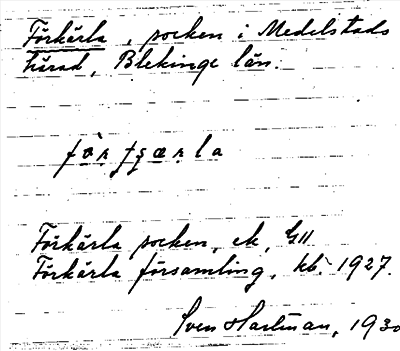 Förkärla, socken i Medelstads
härad, Blekinge län.
Förkärla socken, ek, G11
Förkärla församling, kb. 1927.
Sven Hartman, 1930